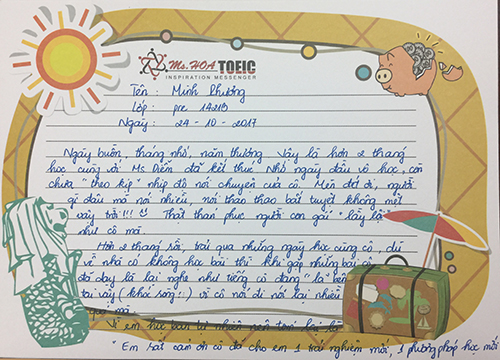 Ms.HOA TOEIC
INSPIRATION MESSENGER
Tên: Minh Phương
Lớp: pre 1421B
Ngày: 24-10-2017
Ngày buồn, tháng nhớ, năm thương. Vậy là hơn 2 tháng
học cùng với Ms Diễm đã kết thúc. Nhớ ngày đầu vô học, còn
chưa "theo kịp" nhịp độ nói chuyện của cô. Mèn đét ơi, người
gì đâu mà nói nhiều, nói thao thao bất tuyệt không mệt
vậy trời!!! Thật thán phục người con gái "lầy lội"
như cô mà.
Hơn 2 tháng rồi, trải qua những ngày học cùng cô, dù
về nhà có không học bài thì khi gặp những bài cô
đã dạy là lại nghe như tiếng cô đang "la" bên
tai vậy (khổ sống!) vì cô nói đi nói lại nhiều
quá mà.
Vì em học ban tự nhiên nên
"Em rất cảm ơn cô đã cho em 1 trải nghiệm mới, 1 phương pháp học mới